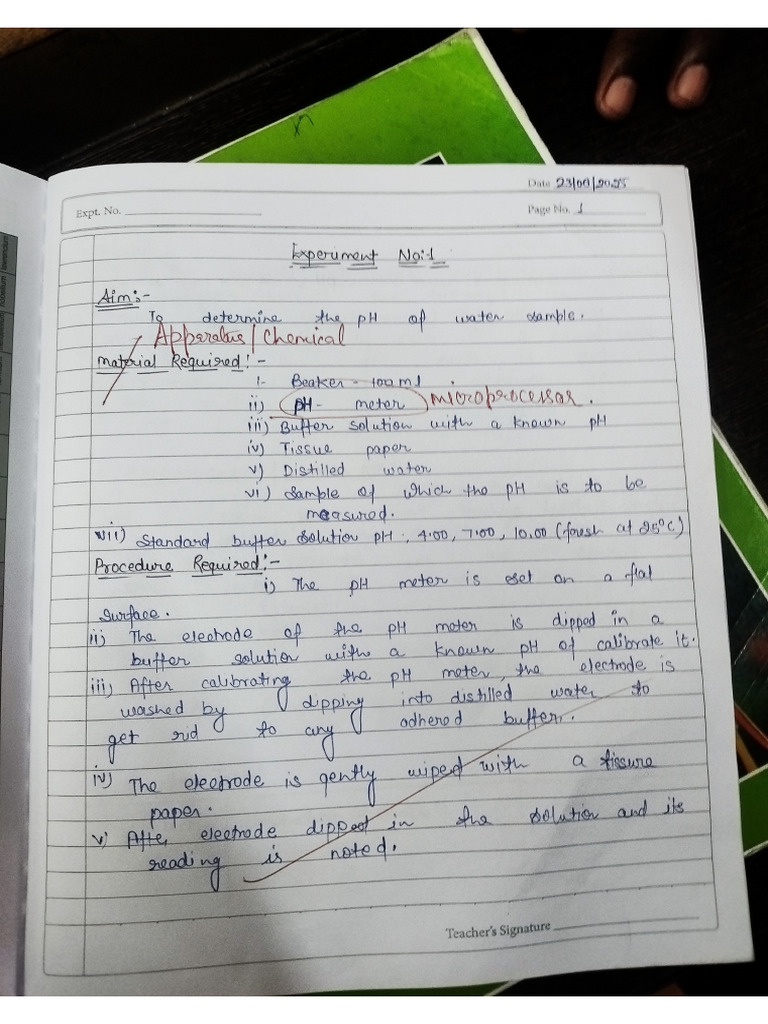 Date 23/09/2025
Expt. No.
Page No. 1
Experiment No:1
Aim:-
To determine the pH of water sample.
Apparatus / Chemical
Material Required:-
i- Beaker - 100 ml
ii) pH- meter microprocessor.
iii) Buffer solution with a known pH
iv) Tissue paper
v) Distilled water
vi) Sample of which the pH is to be
measured.
vii) Standard buffer solution pH, 4.00, 7.00, 10.00 (fresh at 25°C)
Procedure Required:-
i) The pH meter is set on a flat
surface.
ii) The electrode of the pH meter is dipped in a
buffer solution with a known pH of calibrate it.
iii) After calibrating the pH meter, the electrode is
washed by dipping into distilled water to
get rid to any adhered buffer.
iv) The electrode is gently wiped with a tissure
paper.
v) Afte, electrode dipped in the solution and its
reading is noted.
Teacher's Signature